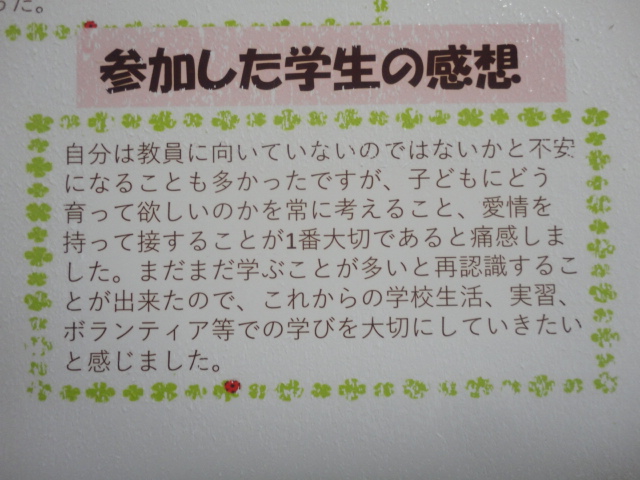 った。
参加した学生の感想
自分は教員に向いていないのではないかと不安
になることも多かったですが、子どもにどう
育って欲しいのかを常に考えること、愛情を
持って接することが1番大切であると痛感しま
した。まだまだ学ぶことが多いと再認識するこ
とが出来たので、これからの学校生活、実習、
ボランティア等での学びを大切にしていきたい
と感じました。